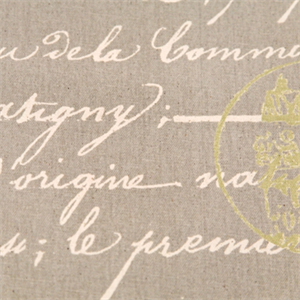 u dela Commu
atigny;
l'origine na
si; le premie